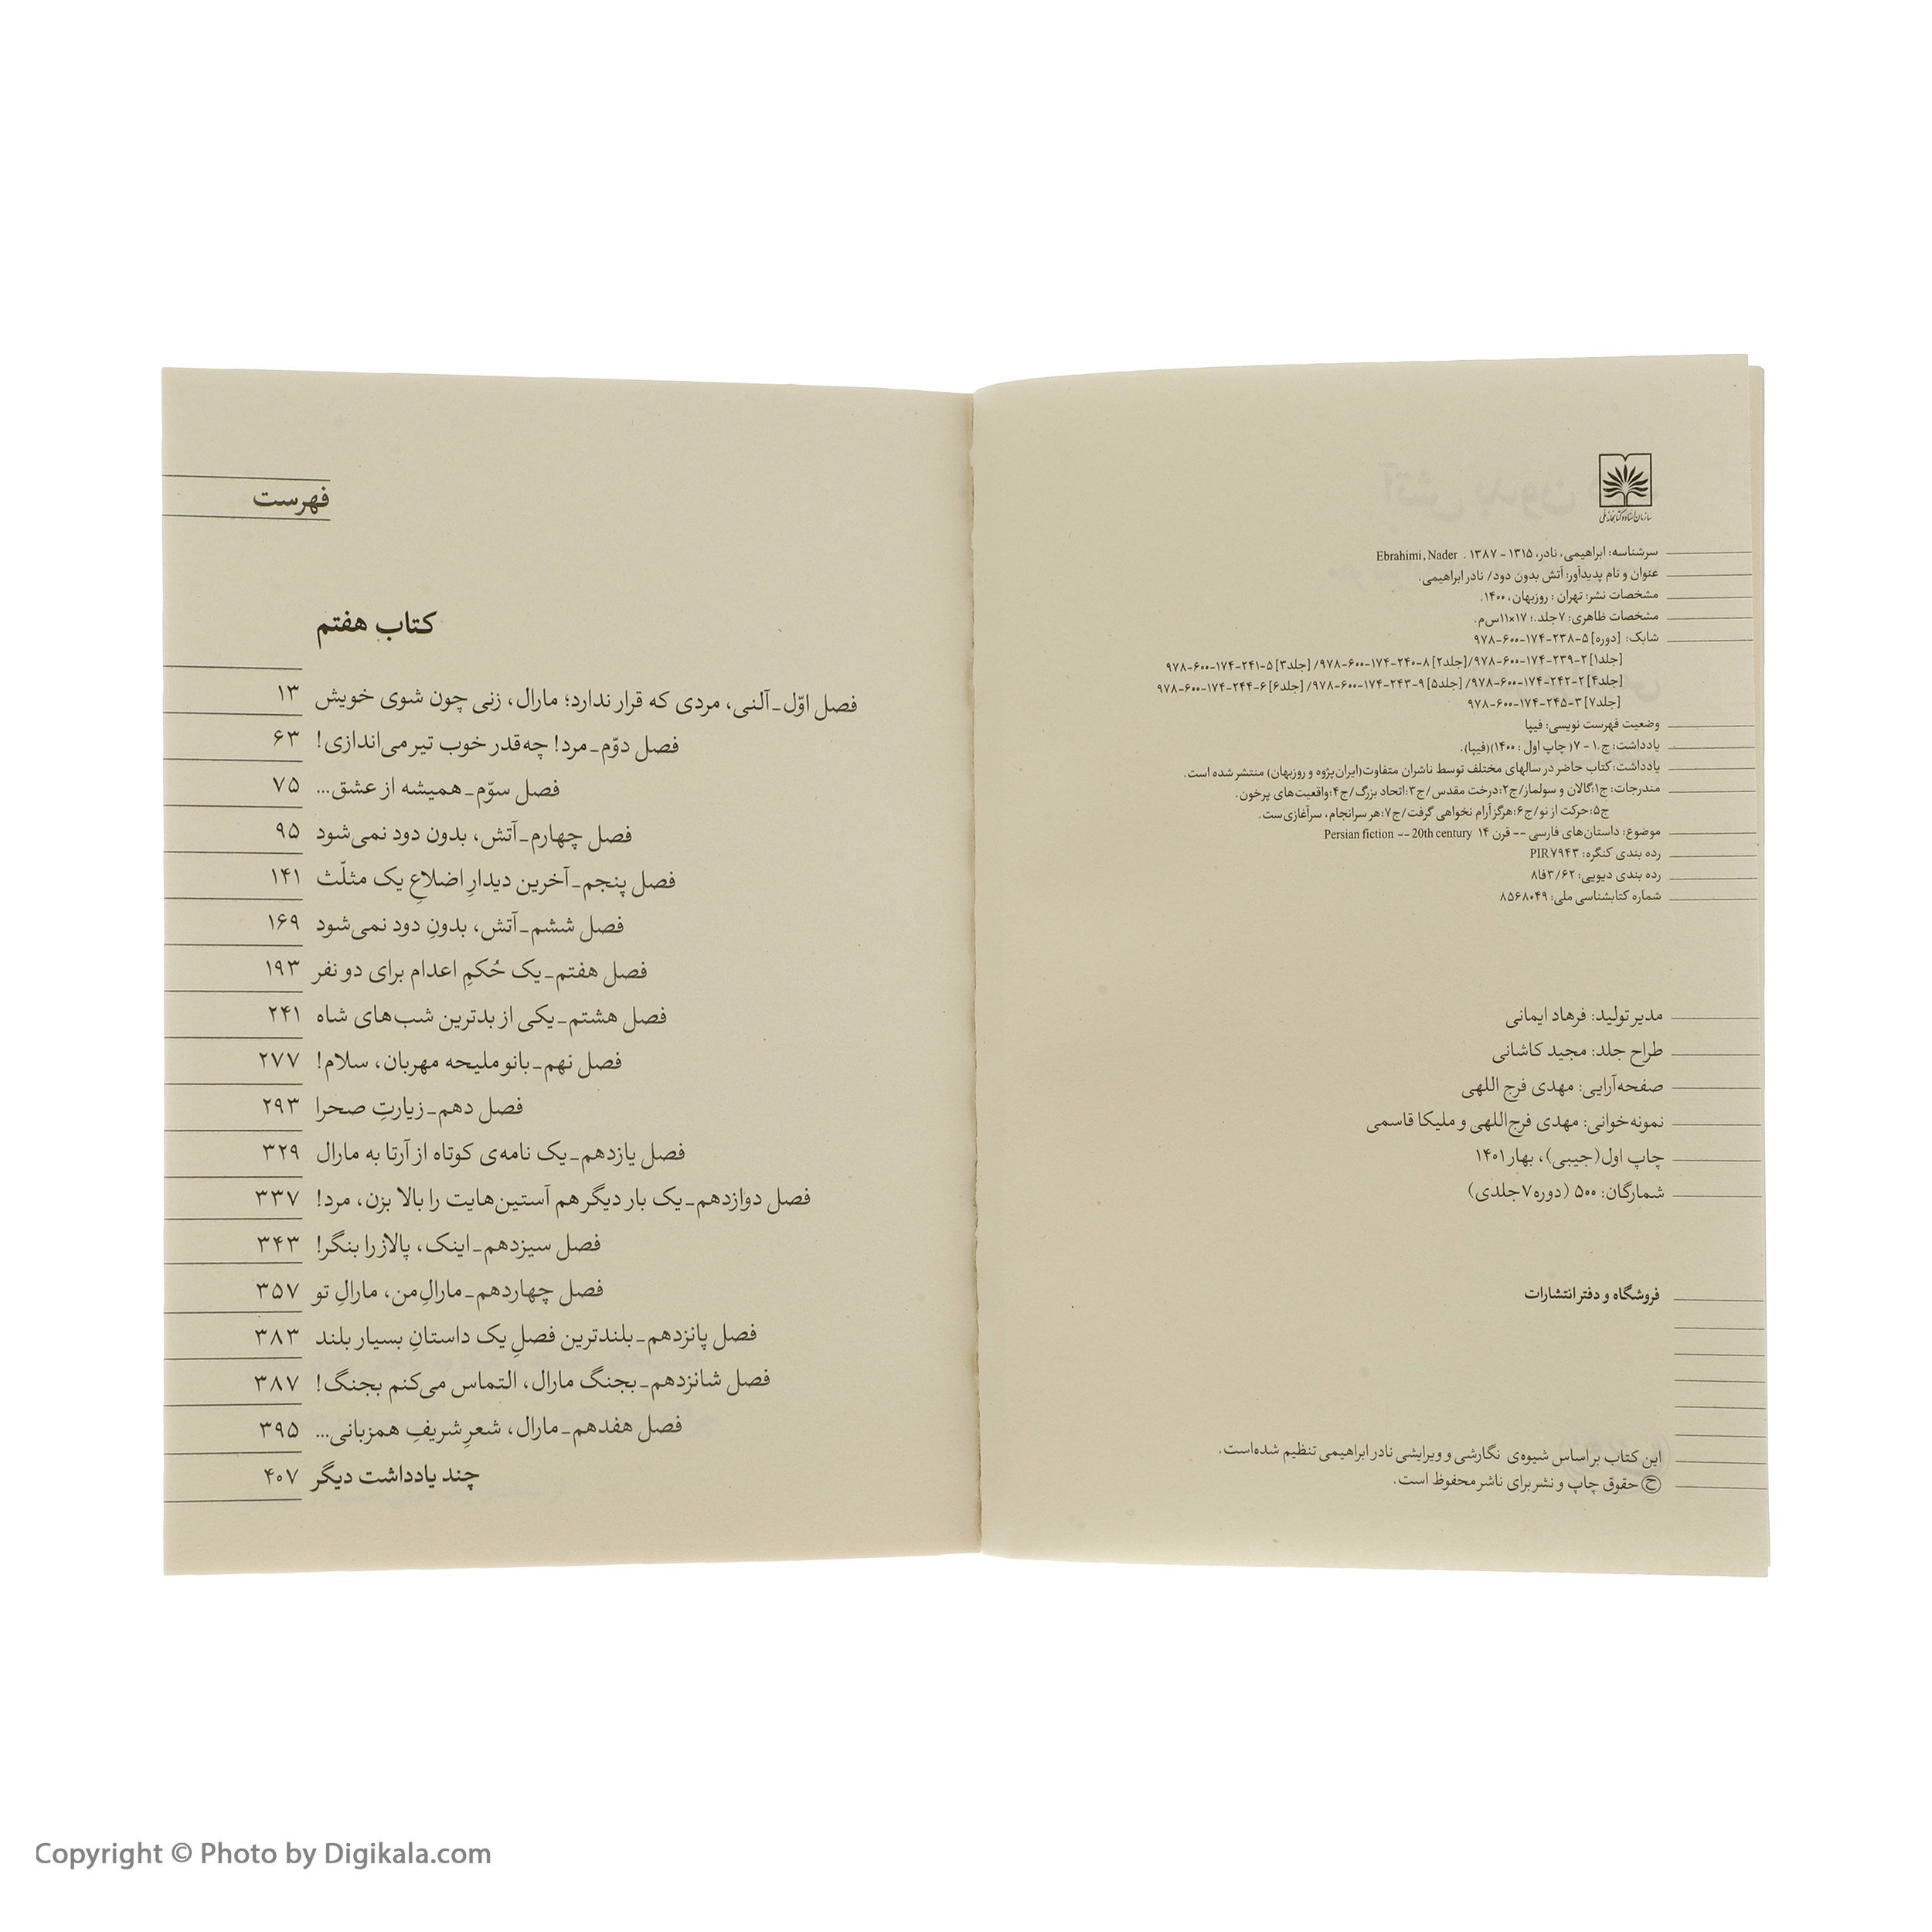 سازمان اسناد و کتابخانه ملی
سرشناسه: ابراهیمی، نادر، ۱۳۱۵ - ۱۳۸۷ . Ebrahimi, Nader
عنوان و نام پدیدآور: آتش بدون دود/ نادر ابراهیمی.
مشخصات نشر: تهران : روزبهان، ۱۴۰۰.
مشخصات ظاهری: ۷جلد.؛ ۱۷×۱۱س‌م.
شابک: [دوره] ۵-۲۳۸-۱۷۴-۶۰۰-۹۷۸
[جلد۱] ۲-۲۳۹-۱۷۴-۶۰۰-۹۷۸/ [جلد۲] ۸-۲۴۰-۱۷۴-۶۰۰-۹۷۸/ [جلد۳] ۵-۲۴۱-۱۷۴-۶۰۰-۹۷۸
[جلد۴] ۲-۲۴۲-۱۷۴-۶۰۰-۹۷۸/ [جلد۵] ۹-۲۴۳-۱۷۴-۶۰۰-۹۷۸/ [جلد۶] ۶-۲۴۴-۱۷۴-۶۰۰-۹۷۸
[جلد۷] ۳-۲۴۵-۱۷۴-۶۰۰-۹۷۸
وضعیت فهرست نویسی: فیپا
یادداشت: ج.۱ - ۷( چاپ اول : ۱۴۰۰)(فیپا).
یادداشت: کتاب حاضر در سالهای مختلف توسط ناشران متفاوت(ایران‌پژوه و روزبهان) منتشر شده است.
مندرجات: ج۱:گالان و سولماز/ج۲:درخت مقدس/ج۳:اتحاد بزرگ/ج۴:واقعیت‌های پرخون.
ج۵:حرکت از نو/ج۶:هرگز آرام نخواهی گرفت/ج۷:هر سرانجام، سرآغازی‌ست.
موضوع: داستان‌های فارسی -- قرن ۱۴ Persian fiction -- 20th century
رده بندی کنگره: PIR۷۹۴۳
رده بندی دیویی: ۳/۶۲فا۸
شماره کتابشناسی ملی: ۸۵۶۸۰۴۹
مدیر تولید: فرهاد ایمانی
طراح جلد: مجید کاشانی
صفحه‌آرایی: مهدی فرج اللهی
نمونه‌خوانی: مهدی فرج‌اللهی و ملیکا قاسمی
چاپ اول(جیبی)، بهار۱۴۰۱
شمارگان: ۵۰۰ (دوره۷جلدی)
فروشگاه و دفتر انتشارات
این کتاب بر اساس شیوه‌ی نگارشی و ویرایشی نادر ابراهیمی تنظیم شده‌است.
ح حقوق چاپ و نشر برای ناشر محفوظ است.
فهرست
کتاب هفتم
فصل اوّل_آلنی، مردی که قرار ندارد؛ مارال، زنی چون شوی خویش ۱۳
فصل دوّم_مرد! چه‌قدر خوب تیر می‌اندازی! ۶۳
فصل سوّم_همیشه از عشق... ۷۵
فصل چهارم_آتش، بدون دود نمی‌شود ۹۵
فصل پنجم_آخرین دیدارِ اضلاعِ یک مثلّث ۱۴۱
فصل ششم_آتش، بدونِ دود نمی‌شود ۱۶۹
فصل هفتم_یک حُکمِ اعدام برای دو نفر ۱۹۳
فصل هشتم_یکی از بدترین شب‌های شاه ۲۴۱
فصل نهم_بانو ملیحه مهربان، سلام! ۲۷۷
فصل دهم_زیارتِ صحرا ۲۹۳
فصل یازدهم_یک نامه‌ی کوتاه از آرتا به مارال ۳۲۹
فصل دوازدهم_یک بار دیگر هم آستین‌هایت را بالا بزن، مرد! ۳۳۷
فصل سیزدهم_اینک، پالاز را بنگر! ۳۴۳
فصل چهاردهم_مارالِ‌من، مارالِ تو ۳۵۷
فصل پانزدهم_بلندترین فصلِ یک داستانِ بسیار بلند ۳۸۳
فصل شانزدهم_بجنگ مارال، التماس می‌کنم بجنگ! ۳۸۷
فصل هفدهم_مارال، شعرِ شریفِ همزبانی... ۳۹۵
چند یادداشت دیگر ۴۰۷
Copyright © Photo by Digikala.com